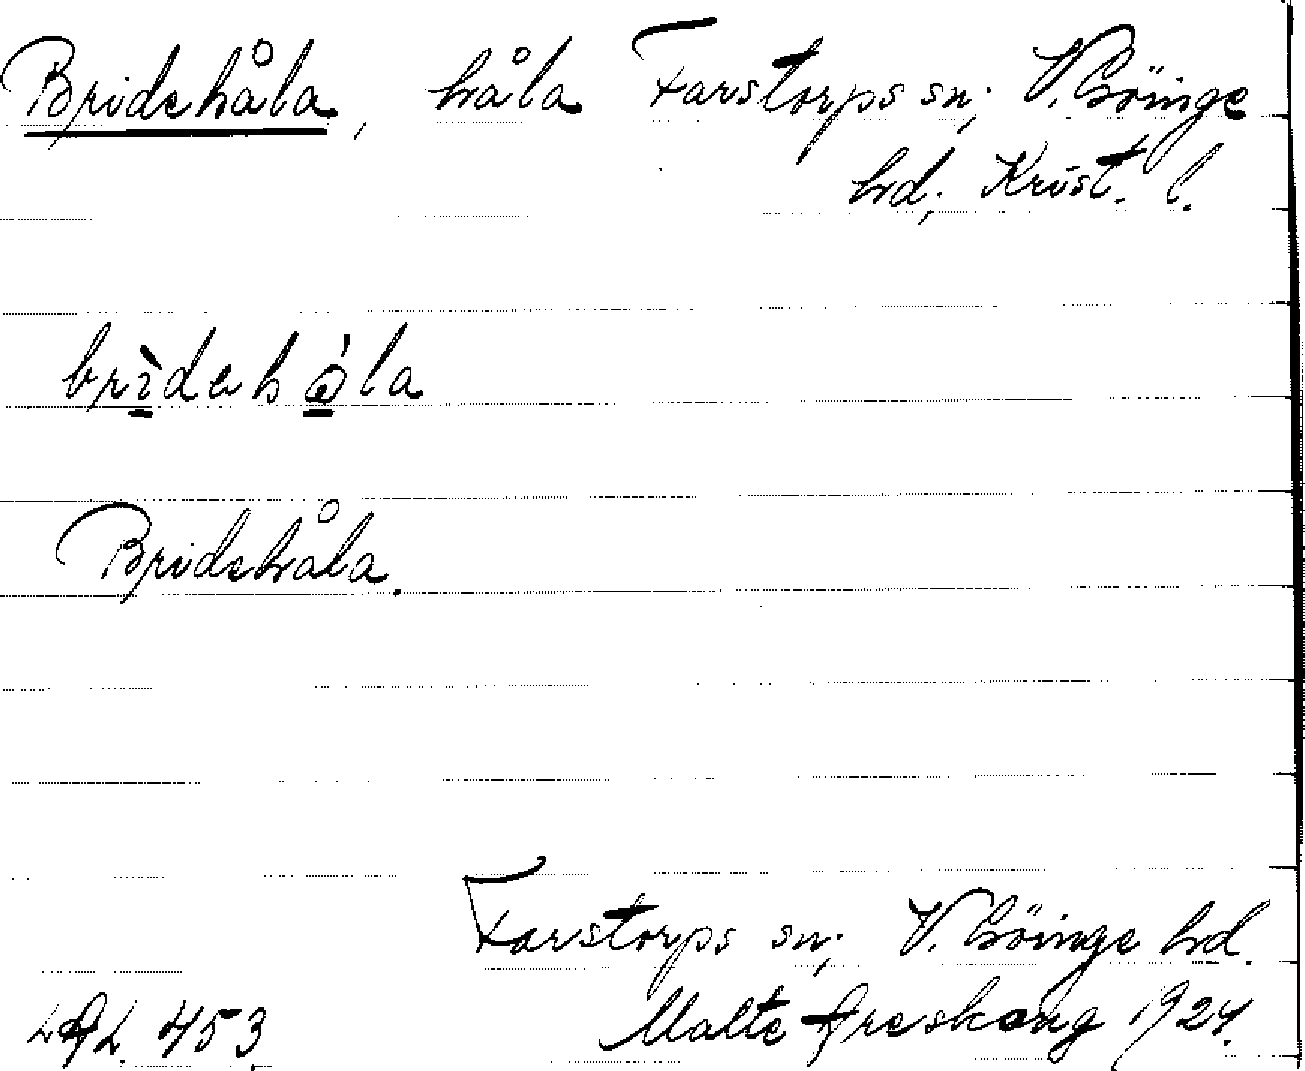 Bridehåla, håla Farstorps sn; V. Göinge
hd; Krist. l.
brìdahǻla
Bridehåla.
Farstorps sn; V. Göinge hd.
LAL. 453 Malte Areskoug 1924.